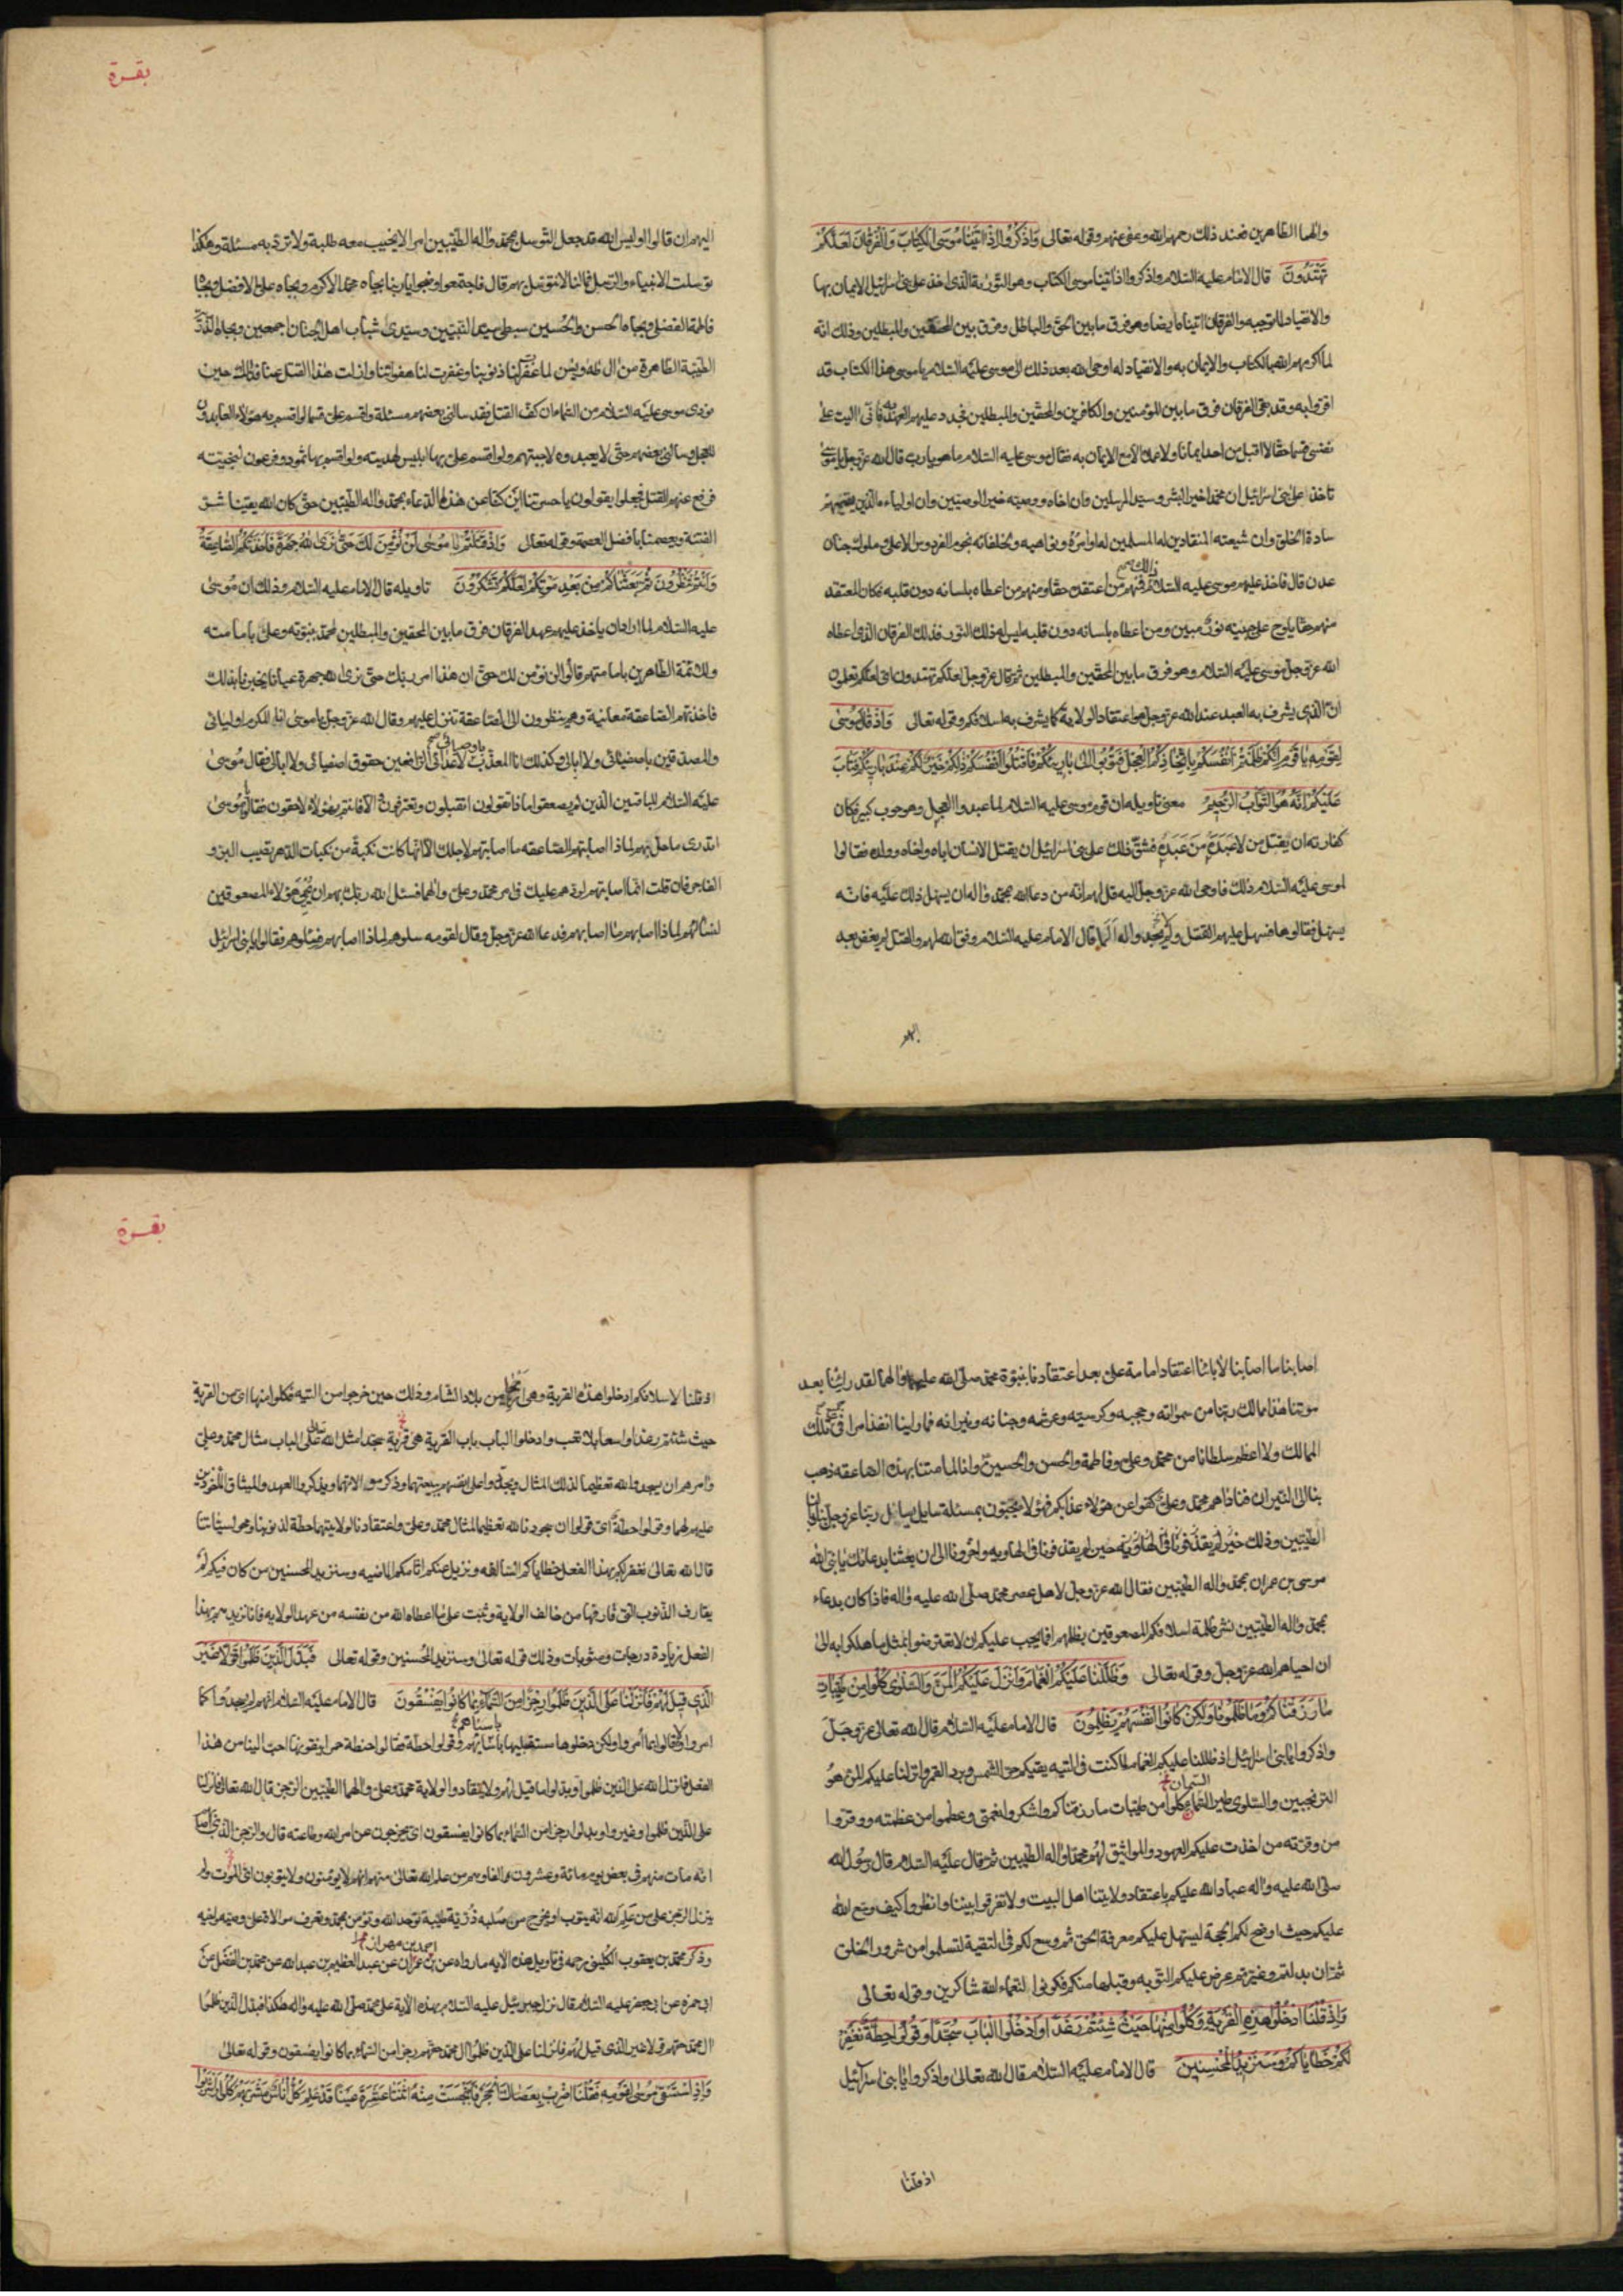 والهما الطاهرين فعند ذلك رحمهم الله وعفى عنهم وقوله تعالى وَاِذْ اٰتَيْنَا مُوسَى الْكِتَابَ وَالْفُرْقَانَ لَعَلَّكُمْ
تَهْتَدُونَ قال الامام عليه السلام واذكروا اذ اتينا موسى الكتاب وهو التورية الذى اخذ على بنى اسرائيل الايمان بها
والانقياد لما توجبه والفرقان اتيناه ايضا وهو فرق مابين الحق والباطل وفرق بين المحقين والمبطلين وذلك انه
لما اكرمهم الله بالكتاب والايمان به والانقياد له اوحى الله بعد ذلك الى موسى عليه السلام يا موسى هذا الكتاب قد
اقروا به وقد بقى الفرقان فرق مابين المؤمنين والكافرين والمحقين والمبطلين فجدد عليهم العهد به فانى اليت على
نفسى قسما حقا لا اقبل من احد ايمانا ولا عملا الا مع الايمان به فقال موسى عليه السلام ما هو يا رب قال الله عز وجل يا موسى
تاخذ على بنى اسرائيل ان محمدا خير البشر وسيد المرسلين وان اخاه ووصيه خير الوصيين وان اولياءه الذين يقيمهم
سادة الخلق وان شيعته المنقادين له المسلمين له اوامره ونواهيه ولخلفائه نجوم الفردوس الاعلى وملوك جنات
عدن قال فاخذ عليهم موسى عليه السلام ذلك فمنهم من اعتقده حقا ومنهم من اعطاه بلسانه دون قلبه فكان المعتقد
منهم حقا يلوح على جبينه نور مبين ومن اعطاه بلسانه دون قلبه ليس له ذلك النور فذلك الفرقان الذى اعطاه
الله عز وجل موسى عليه السلام وهو فرق مابين المحقين والمبطلين ثم قال عز وجل لعلكم تهتدون اى لعلكم تعلمون
ان الذى يشرف به العبد عند الله عز وجل هو اعتقاد الولاية كما يشرف به اسلافكم وقوله تعالى وَاِذْ قَالَ مُوسٰى
لِقَوْمِهِ يَا قَوْمِ اِنَّكُمْ ظَلَمْتُمْ اَنْفُسَكُمْ بِاتِّخَاذِكُمُ الْعِجْلَ فَتُوبُوا اِلٰى بَارِئِكُمْ فَاقْتُلُوا اَنْفُسَكُمْ ذٰلِكُمْ خَيْرٌ لَكُمْ عِنْدَ بَارِئِكُمْ فَتَابَ
عَلَيْكُمْ اِنَّهُ هُوَ التَّوَّابُ الرَّحِيمُ معنى تاويله ان قوم موسى عليه السلام لما عبدوا العجل وهو حوب كبير فكان
كفارته ان يقتل من لا عبده من عبده فشق ذلك على بنى اسرائيل ان يقتل الانسان اباه واخاه وولده فقالوا
لموسى عليه السلام ذلك فاوحى الله عز وجل اليه قل لهم انه من دعا الله بمحمد واله ان يسهل ذلك عليه فانه
يسهل فقالوها فسهل عليهم القتل ولم يجدوا له الما قال الامام عليه السلام وفق الله لهم والقتل لم يفض بعد
اليهم
اليهم ان قالوا اوليس الله قد جعل التوسل بمحمد واله الطيبين امرا لا يخيب معه طلبة ولا ترد به مسئلة وهكذا
توسلت الانبياء والرسل فما لنا لا نتوسل بهم قال فاجتمعوا وضجوا يا ربنا بجاه محمد الاكرم وبجاه على الافضل وبجاه
فاطمة الفضلى وبجاه الحسن والحسين سبطى سيد النبيين وسيدى شباب اهل الجنان اجمعين وبجاه الذرية
الطيبة الطاهرة من ال طه ويس لما غفرت لنا ذنوبنا وغفرت لنا هفواتنا وازلت هذا القتل عنا فذلك حين
نودى موسى عليه السلام من السماء ان كف القتل فقد سالنى بعضهم مسئلة واقسم على قسما لو اقسم به هؤلاء العابدون
للعجل وسالنى بعضهم حتى لا يعبدوه لاجبتهم ولو اقسم على بها ابليس لهديته ولو اقسم بها نمرود وفرعون لنجيته
فرفع عنهم القتل فجعلوا يقولون يا حسرتنا اين كنا عن هذا الدعاء بمحمد واله الطيبين حتى كان الله يقينا شر
الفتنة ويعصمنا بافضل العصمة وقوله تعالى وَاِذْ قُلْتُمْ يَا مُوسٰى لَنْ نُؤْمِنَ لَكَ حَتّٰى نَرَى اللهَ جَهْرَةً فَاَخَذَتْكُمُ الصَّاعِقَةُ
وَاَنْتُمْ تَنْظُرُونَ ثُمَّ بَعَثْنَاكُمْ مِنْ بَعْدِ مَوْتِكُمْ لَعَلَّكُمْ تَشْكُرُونَ تاويله قال الامام عليه السلام وذلك ان موسى
عليه السلام لما اراد ان ياخذ عليهم عهد الفرقان فرق مابين المحقين والمبطلين لمحمد بنبوته وعلى بامامته
وللائمة الطاهرين بامامتهم قالوا لن نؤمن لك حتى ان هذا امر ربك حتى نرى الله جهرة عيانا يخبرنا بذلك
فاخذتهم الصاعقة معاينة وهم ينظرون الى الصاعقة تنزل عليهم وقال الله عز وجل يا موسى انا المكرم اوليائى
والمصدقين باصفيائى ولا ابالى وكذلك انا المعذب لاعدائى الدافعين حقوق اصفيائى ولا ابالى فقال موسى
عليه السلام للباقين الذين لم يصعقوا ماذا تقولون اتقبلون وتعترفون والا فانتم بهؤلاء لاحقون فقالوا يا موسى
لا ندرى ما حل بهم لماذا اصابتهم الصاعقة ما اصابتهم لاجلك الا انها كانت نكبة من نكبات الدهر تصيب البر و
الفاجر فان قلت انما اصابتهم لردهم عليك فى امر محمد وعلى والهما فسئل الله ربك بهم ان يحيى هؤلاء المصعوقين
لنسالهم لماذا اصابهم ما اصابهم فدعا الله عز وجل وقال لقومه سلوهم لماذا اصابهم فسئلوهم فقالوا يا بنى اسرائيل
بقرة
اصابنا ما اصابنا لابائنا اعتقاد امامة على بعد اعتقادنا بنبوة محمد صلى الله عليهما والهما لقد راينا بعد
موتنا هذا ممالك ربنا من سمواته وحجبه وكرسيه وعرشه وجنانه ونيرانه فما راينا انفذ امرا فى تلك
الممالك ولا اعظم سلطانا من محمد وعلى وفاطمة والحسن والحسين وانا لما متنا بهذه الصاعقة ذهب
بنا الى النيران فناداهم محمد وعلى كفوا عن هؤلاء عذابكم فهؤلاء يحيون بمسئلة سايل يسال ربنا عز وجل بنا وبالنا
الطيبين وذلك حين لم يقذفونا فى الهاوية واخرونا الى ان بعثنا بدعائك يا نبى الله
موسى بن عمران بمحمد واله الطيبين فقال الله عز وجل لاهل عصر محمد صلى الله عليه واله فاذا كان بدعاء
بمحمد واله الطيبين نشر ظلمة اسلافكم المصعوقين بظلمهم افما يجب عليكم ان لا تعترضوا لمثل ما هلكوا به الى
ان احياهم الله عز وجل وقوله تعالى وَظَلَّلْنَا عَلَيْكُمُ الْغَمَامَ وَاَنْزَلْنَا عَلَيْكُمُ الْمَنَّ وَالسَّلْوٰى كُلُوا مِنْ طَيِّبَاتِ
مَا رَزَقْنَاكُمْ وَمَا ظَلَمُونَا وَلٰكِنْ كَانُوا اَنْفُسَهُمْ يَظْلِمُونَ قال الامام عليه السلام قال الله تعالى عز وجل
واذكروا يا بنى اسرائيل اذ ظللنا عليكم الغمام لما كنتم فى التيه يقيكم حر الشمس وبرد القمر وانزلنا عليكم المن هو
الترنجبين والسلوى طير السمان كلوا من طيبات ما رزقناكم واشكروا نعمتى وعظموا من عظمته ووقروا
من وقرته من اخذت عليكم العهود والمواثيق لهم محمد واله الطيبين ثم قال عليه السلام قال رسول الله
صلى الله عليه واله عباد الله عليكم باعتقاد ولايتنا اهل البيت ولا تفرقوا بيننا وانظروا كيف وسع الله
عليكم حيث اوضح لكم الحجة ليسهل عليكم معرفة الحق ثم وسع لكم فى التقية لتسلموا من شرور الخلق
ثم ان بدلتم وغيرتم عرض عليكم التوبة وقبلها منكم فكونوا لنعماء الله شاكرين وقوله تعالى
وَاِذْ قُلْنَا ادْخُلُوا هٰذِهِ الْقَرْيَةَ فَكُلُوا مِنْهَا حَيْثُ شِئْتُمْ رَغَدًا وَادْخُلُوا الْبَابَ سُجَّدًا وَقُولُوا حِطَّةٌ نَغْفِرْ
لَكُمْ خَطَايَاكُمْ وَسَنَزِيدُ الْمُحْسِنِينَ قال الامام عليه السلام قال الله تعالى واذكروا يا بنى اسرائيل
اذ قلنا
بقرة
اذ قلنا لاسلافكم ادخلوا هذه القرية وهى اريحا من بلاد الشام وذلك حين خرجوا من التيه فكلوا منها اى من القرية
حيث شئتم رغدا واسعا بلا تعب وادخلوا الباب باب القرية سجدا مثل الله تعالى على الباب مثال محمد وعلى
وامرهم ان يسجدوا لله تعظيما لذلك المثال ويجددوا على انفسهم بيعتهما وذكر موالاتهما ويذكروا العهد والميثاق الماخوذين
عليهم لهما وقولوا حطة اى قولوا ان سجودنا لله تعظيما لمثال محمد وعلى واعتقادنا لولايتهما حطة لذنوبنا ومحو لسيئاتنا
قال الله تعالى نغفر لكم بهذا الفعل خطاياكم السالفه ونزيل عنكم اثامكم الماضيه وسنزيد المحسنين من كان فيكم لم
يقارف الذنوب التى قارفها من خالف الولاية وثبت على ما اعطاه الله من نفسه من عهد الولاية فانا نزيدهم بهذا
الفعل زيادة درجات ومثوبات وذلك قوله تعالى وسنزيد المحسنين وقوله تعالى فَبَدَّلَ الَّذِينَ ظَلَمُوا قَوْلًا غَيْرَ
الَّذِى قِيلَ لَهُمْ فَاَنْزَلْنَا عَلَى الَّذِينَ ظَلَمُوا رِجْزًا مِنَ السَّمَاءِ بِمَا كَانُوا يَفْسُقُونَ قال الامام عليه السلام انهم لم يسجدوا كما
امروا ولا قالوا بما امروا ولكن دخلوها مستقبليها باستاههم وقالوا حنطة حمراء نتقوتها احب الينا من هذا
الفعل فانزل الله على الذين ظلموا وبدلوا ما قيل لهم ولا ينقادوا لولاية محمد وعلى والهما الطيبين الرجز قال الله تعالى فانزلنا
على الذين ظلموا وغيروا وبدلوا رجزا من السماء بما كانوا يفسقون اى يخرجون عن امر الله وطاعته قال والرجز الذى اصابهم
انه مات منهم فى بعض يوم مائة وعشرون الفا وهم من علم الله تعالى منهم انهم لا يؤمنون ولا يتوبون اى الموت ولم
ينزل الرجز على من علم الله انه يتوب او يخرج من صلبه ذرية طيبة توحد الله وتؤمن بمحمد وتعرف موالاة على وصيه واخيه
وذكر محمد بن يعقوب الكلينى رحمه فى تاويل هذه الايه ما رواه عن احمد بن مهران عن عبد العظيم بن عبد الله عن محمد بن الفضل عن
ابى حمزه عن ابى جعفر عليه السلام قال نزل جبرئيل عليه السلام بهذه الاية على محمد صلى الله عليه واله هكذا فبدل الذين ظلموا
ال محمد حقهم قولا غير الذى قيل لهم فانزلنا على الذين ظلموا ال محمد حقهم رجزا من السماء بما كانوا يفسقون وقوله تعالى
وَاِذِ اسْتَسْقٰى مُوسٰى لِقَوْمِهِ فَقُلْنَا اضْرِبْ بِعَصَاكَ الْحَجَرَ فَانْفَجَرَتْ مِنْهُ اثْنَتَا عَشْرَةَ عَيْنًا قَدْ عَلِمَ كُلُّ اُنَاسٍ مَشْرَبَهُمْ كُلُوا وَاشْرَبُوا